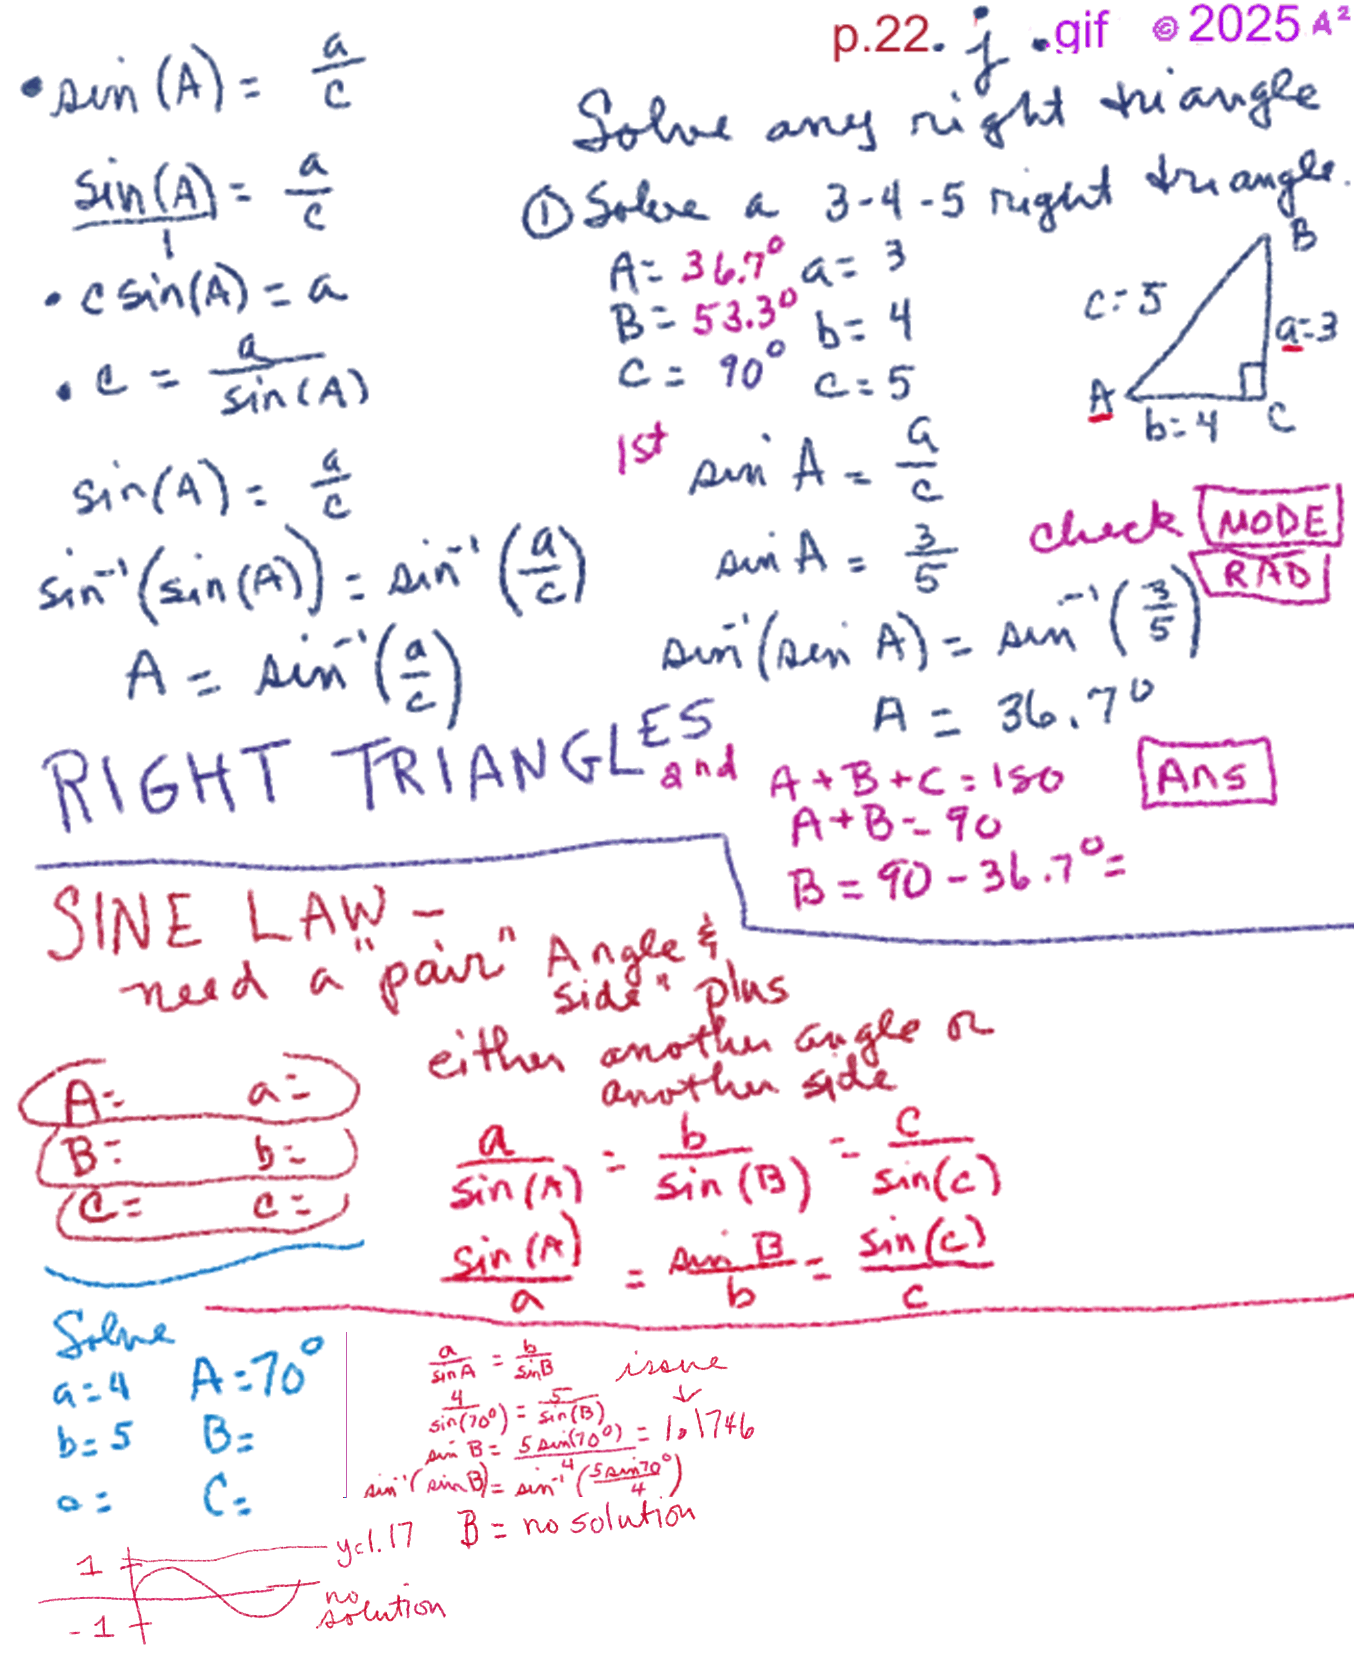 p.22.j.gif © 2025 A²
• sin(A) = a/c
sin(A)/1 = a/c
• c sin(A) = a
• c = a/sin(A)
sin(A) = a/c
sin⁻¹(sin(A)) = sin⁻¹(a/c)
A = sin⁻¹(a/c)
Solve any right triangle
① Solve a 3-4-5 right triangle.
A = 36.7° a = 3
B = 53.3° b = 4
C = 90° c = 5
B
c = 5
a = 3
A
b = 4
C
1st sin A = a/c
sin A = 3/5
check MODE
RAD
sin⁻¹(sin A) = sin⁻¹(3/5)
A = 36.7°
RIGHT TRIANGLES
2nd A + B + C = 180
Ans
A + B = 90
B = 90 - 36.7° =
SINE LAW -
need a "pair" Angle &
side" plus
either another angle or
another side
A = a =
B = b =
C = c =
a/sin(A) = b/sin(B) = c/sin(C)
sin(A)/a = sin B/b = sin(C)/c
Solve
a = 4 A = 70°
b = 5 B =
c = C =
a/sin A = b/sin B
issue
↓
4/sin(70°) = 5/sin(B)
sin B = 5 sin(70°)/4 = 1.1746
sin⁻¹(sin B) = sin⁻¹(5 sin 70°/4)
B = no solution
1
y = 1.17
-1
no
solution